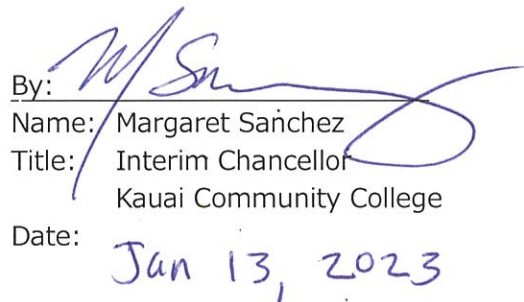 By:
Name: Margaret Sanchez
Title: Interim Chancellor
Kauai Community College
Date: Jan 13, 2023